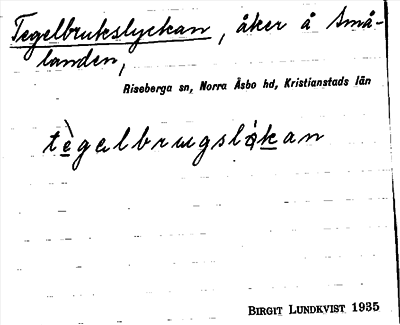 Tegelbrukslyckan, åker å Små-
landen,
Riseberga sn, Norra Åsbo hd, Kristianstads län
BIRGIT LUNDKVIST 1935